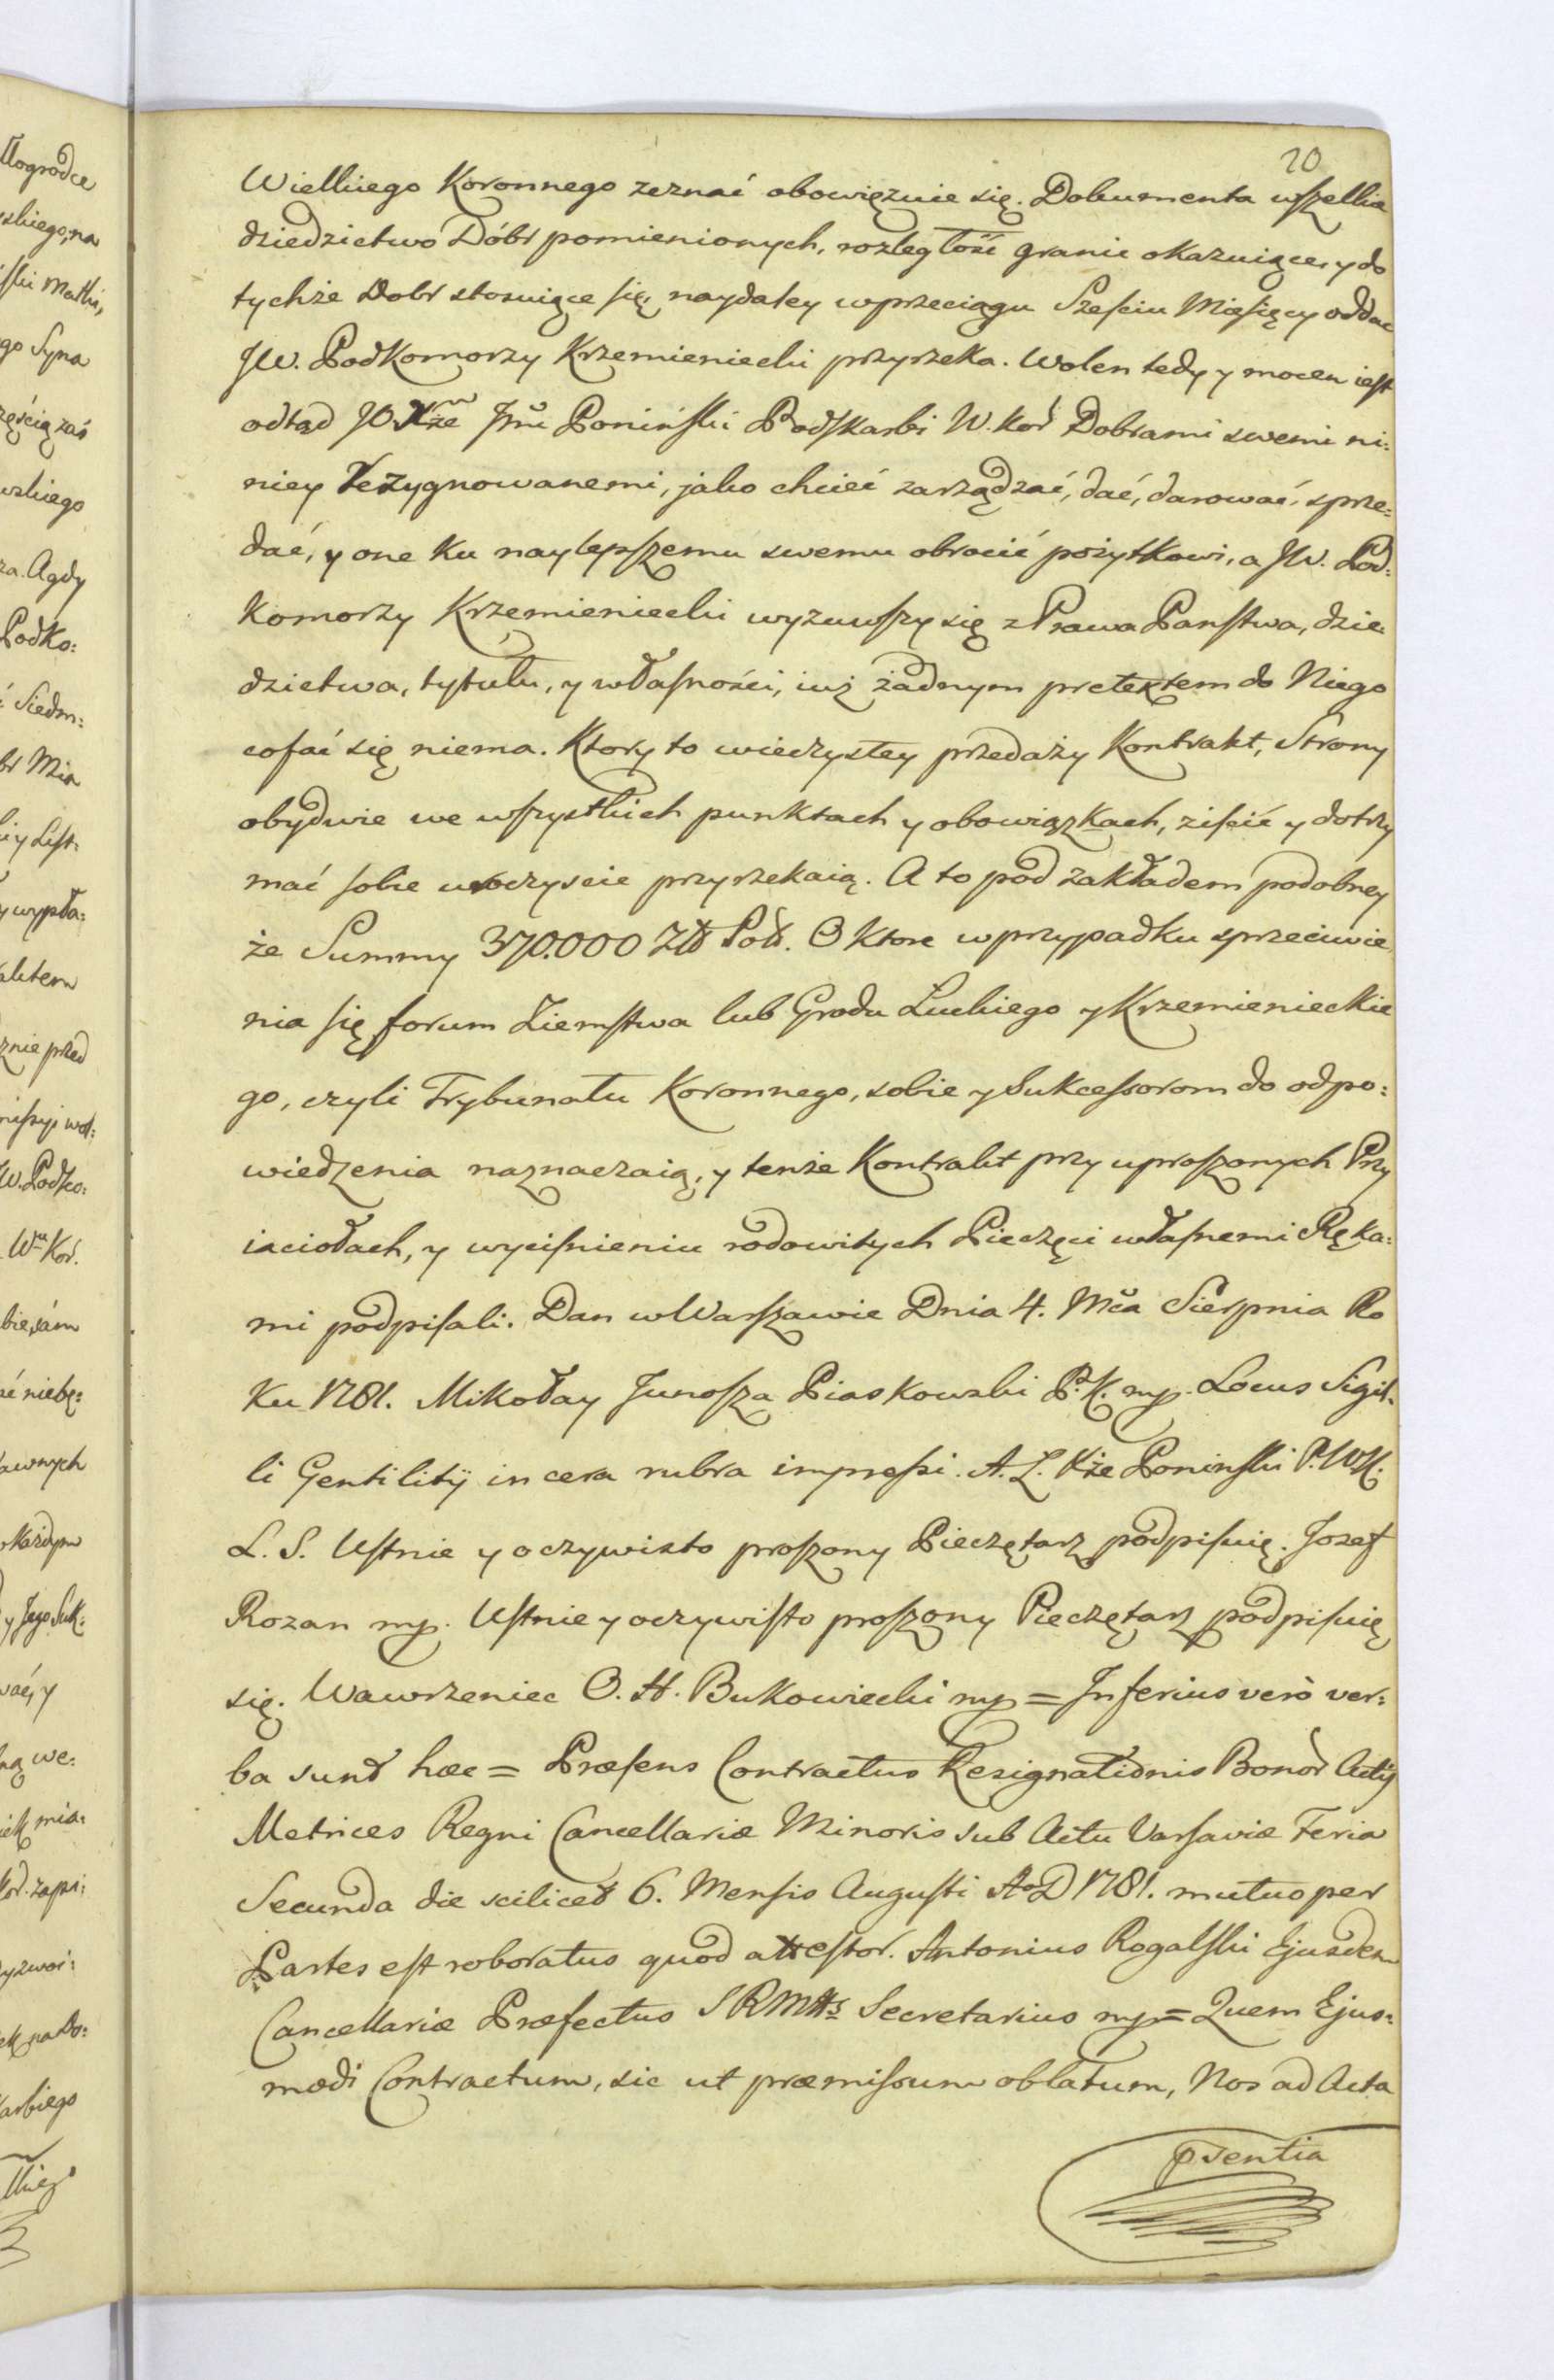 20
Wielkiego Koronnego zeznać obowięzuie się. Dokumenta wszelkie
dziedzictwo Dóbr pomienionych, rozległość granic okazuiące, y do
tychże Dobr stosuiące się, naydaley w przeciągu Sześciu Miesięcy oddać
JW. Podkomorzy Krzemieniecki przyrzeka. Wolen tedy y mocen iest
odtąd JO. Xże Jmć Poniński Podskarbi W. Kor Dobrami swemi ni:
niey rezygnowanemi, jako chcieć zarządzać, dać, darować, sprze:
dać, y one ku naylepszemu swemu obrocić pożytkowi, a JW. Pod:
komorzy Krzemieniecki wyzuwszy się z Prawa Państwa, dzie
dzictwa, tytułu, y własności, iuż żadnym pretextem do Niego
cofać się niema. Ktory to wieczystey przedaży Kontrakt, Strony
obydwie we wszystkich punktach y obowiązkach, ziścić y dotrzy
mać sobie uroczyscie przyrzekaią. A to pod zakładem podobney
że Summy 370.000 Zł Pol. O ktore w przypadku sprzeciwie
nia się forum Ziemstwa lub Grodu Luckiego y Krzemienieckie
go, czyli Trybunału Koronnego, sobie y Sukcessorom do odpo:
wiedzenia naznaczaią, y tenże Kontrakt przy uproszonych Przy
iaciołach, y wyciśnieniu rodowitych Pieczęci własnemi Ręka:
mi podpisali. Dan w Warszawie Dnia 4. Mca Sierpnia Ro
ku 1781. Mikołay Junosza Piaskowski P.K. mp. Locus Sigil:
li Gentilitij in cera rubra impressi. A. L. Xże Poninski P.W.K.
L. S. Ustnie y oczywisto proszony Pieczętarz podpisuię. Jozef
Rozan mp. Ustnie y oczywisto proszony Pieczętarz podpisuię
się. Wawrzeniec O. H. Bukowiecki mp = Inferius verò ver:
ba sunt hæc = Præsens Contractus Resignationis Bonor Actis
Metrices Regni Cancellariæ Minoris sub Actu Varsaviæ Feria
Secunda die scilicet 6. Mensis Augusti A. D 1781. mutuo per
Partes est roboratus quod attestor. Antonius Rogalski Ejusdem
Cancellariæ Præfectus SRMttis Secretarius mp = Quem Ejus:
modi Contractum, sic ut præmissum oblatum, Nos ad Acta
psentia